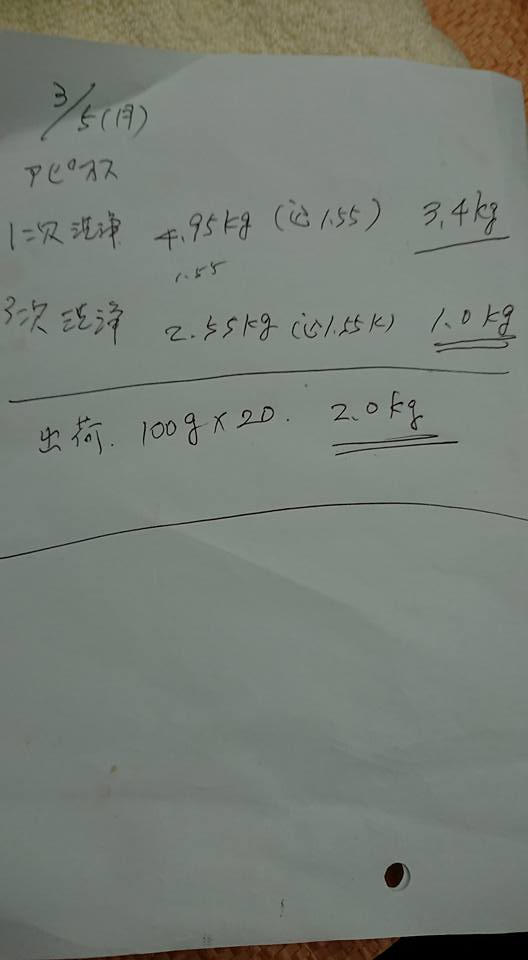 3/5(月)
アピオス
1次洗浄 4.95kg (込1.55) 3.4kg
1.55
3次洗浄 2.55kg (込1.55K) 1.0kg
出荷. 100g×20. 2.0kg